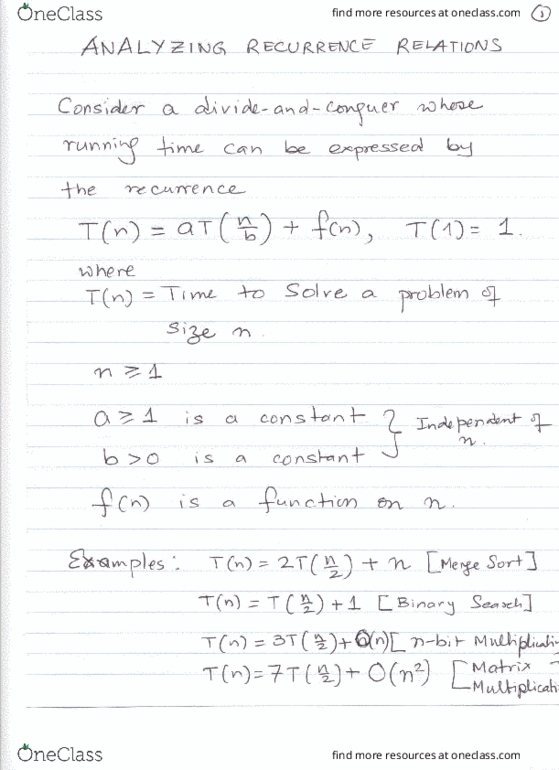 OneClass
find more resources at oneclass.com
1
ANALYZING RECURRENCE RELATIONS
Consider a divide-and-conquer whose
running time can be expressed by
the recurrence
T(n) = aT(n/b) + f(n), T(1) = 1.
where
T(n) = Time to Solve a problem of
size n.
n ≥ 1
a ≥ 1 is a constant } Independent of
b > 0 is a constant n.
f(n) is a function on n.
Examples: T(n) = 2T(n/2) + n [Merge Sort]
T(n) = T(n/2) + 1 [Binary Search]
T(n) = 3T(n/2) + O(n) [n-bit Multiplicati
T(n) = 7T(n/2) + O(n²) [Matrix
Multiplicati
OneClass
find more resources at oneclass.com